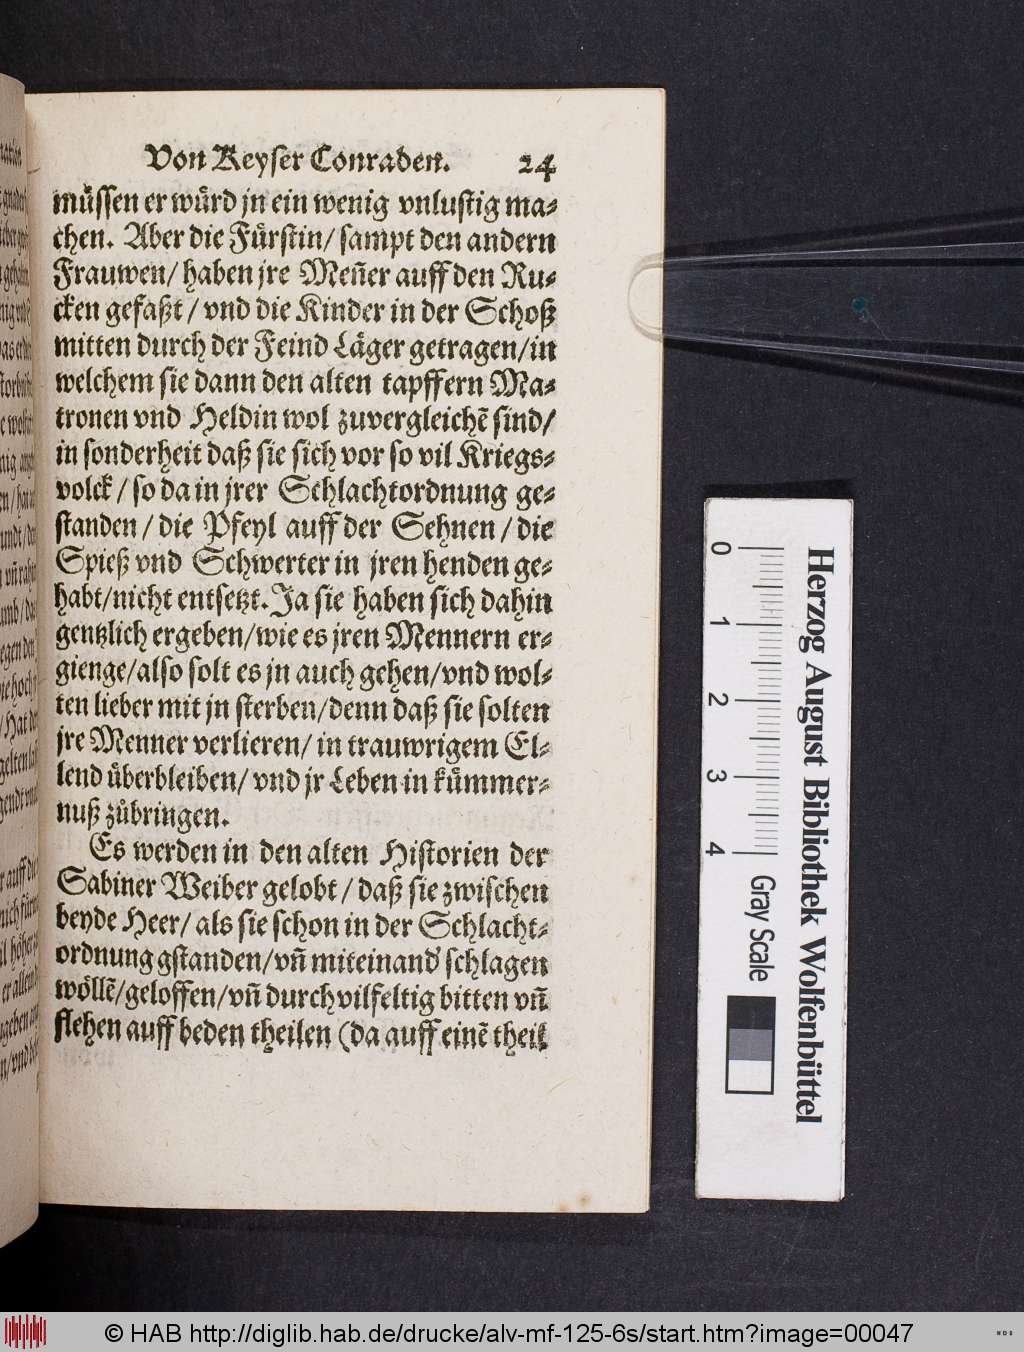 Von Keyser Conraden. 24
müssen er wůrd jn ein wenig vnlustig ma-
chen. Aber die Fürstin/ sampt den andern
Frauwen/ haben jre Meñer auff den Ru-
cken gefaßt/ vnd die Kinder in der Schoß
mitten durch der Feind Läger getragen/in
welchem sie dann den alten tapffern Ma-
tronen vnd Heldin wol zuvergleichẽ sind/
in sonderheit daß sie sich vor so vil Kriegs-
volck/ so da in jrer Schlachtordnung ge-
standen/ die Pfeyl auff der Sehnen/ die
Spieß vnd Schwerter in jren henden ge-
habt/nicht entsetzt. Ja sie haben sich dahin
gentzlich ergeben/wie es jren Mennern er-
gienge/also solt es jn auch gehen/vnd wol-
ten lieber mit jn sterben/denn daß sie solten
jre Menner verlieren/ in trauwrigem El-
lend überbleiben/ vnd jr Leben in kümmer-
nuß zůbringen.
Es werden in den alten Historien der
Sabiner Weiber gelobt/ daß sie zwischen
beyde Heer/ als sie schon in der Schlacht-
ordnung gstanden/vñ miteinand' schlagen
wöllẽ/geloffen/vñ durch vilfeltig bitten vñ
flehen auff beden theilen (da auff einẽ theil
0 1 2 3 4 Gray Scale
Herzog August Bibliothek Wolfenbüttel
© HAB http://diglib.hab.de/drucke/alv-mf-125-6s/start.htm?image=00047